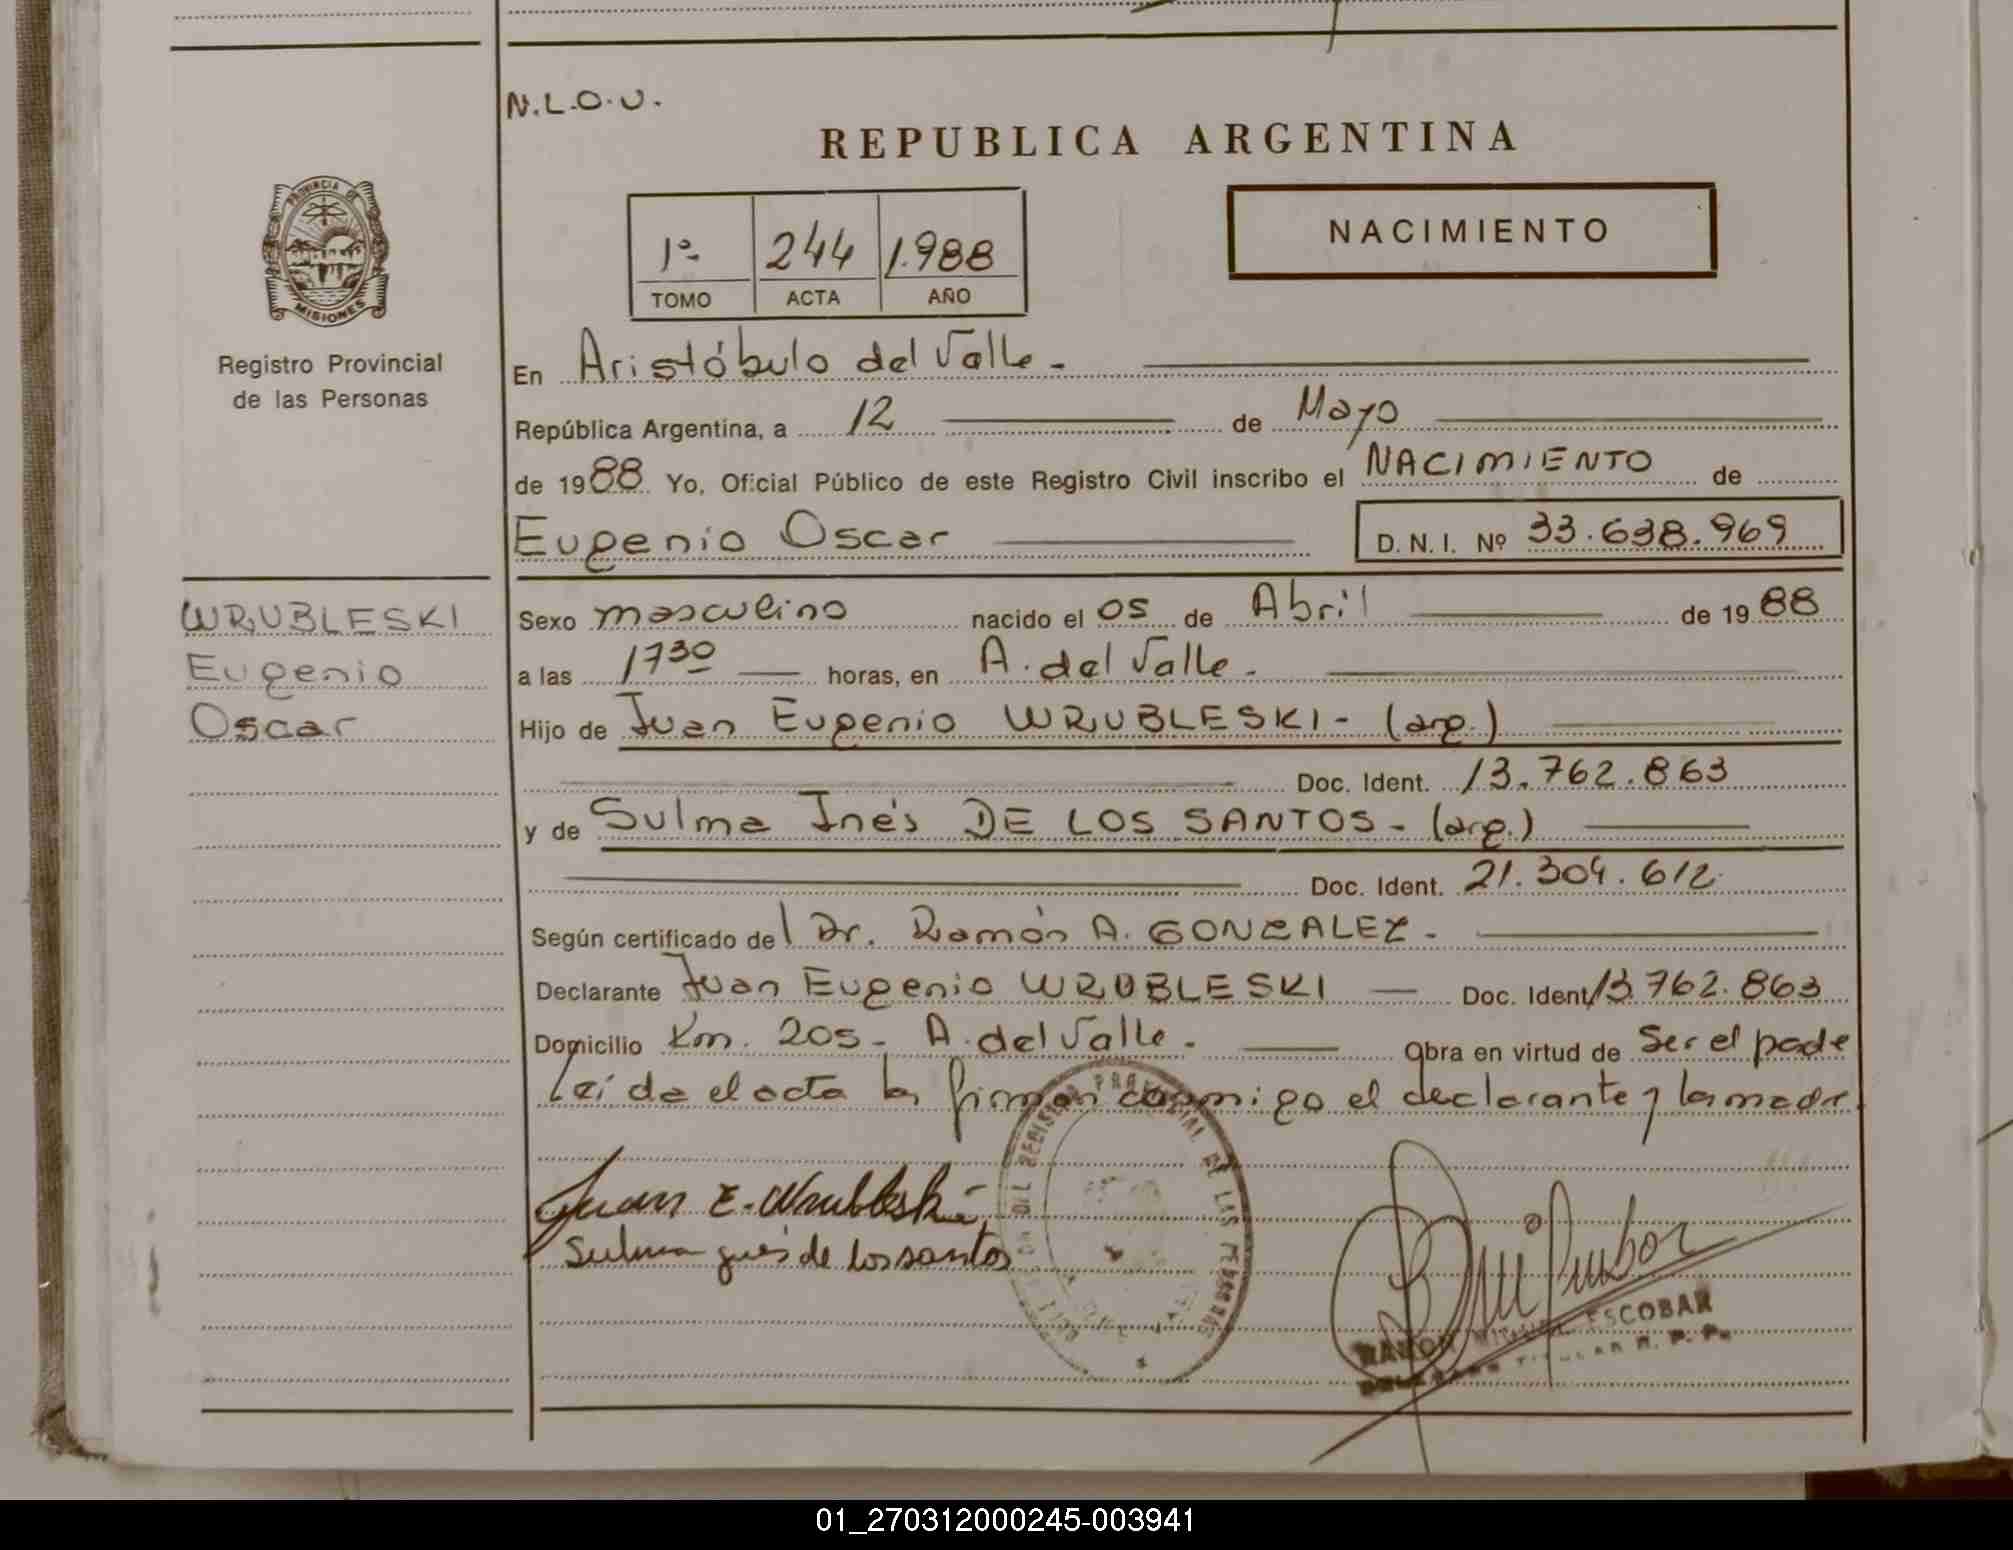 N.L.O.U.
REPUBLICA ARGENTINA
PROVINCIA DE
MISIONES
Registro Provincial
de las Personas
1º 244 1.988
TOMO ACTA AÑO
NACIMIENTO
En Aristóbulo del Valle.-
República Argentina, a 12 de Mayo
de 1988 Yo, Oficial Público de este Registro Civil inscribo el NACIMIENTO de
Eugenio Oscar D.N.I. Nº 33.638.969
WRUBLESKI
Eugenio
Oscar
Sexo masculino nacido el 05 de Abril de 1988
a las 1730 horas, en A. del Valle.-
Hijo de Juan Eugenio WRUBLESKI- (arg.)
Doc. Ident. 13.762.863
y de Sulma Inés DE LOS SANTOS- (arg.)
Doc. Ident. 21.304.612
Según certificado del Dr. Ramón A. GONZALEZ.-
Declarante Juan Eugenio WRUBLESKI Doc. Ident. 13.762.863
Domicilio Km. 205- A. del Valle.- Obra en virtud de Ser el pade
Leída el acta la firman conmigo el declarante y la madre
Juan E. Wrubleski
Sulma Ines de los santos
DEL REGISTRO PROVINCIAL DE LAS PERSONAS
RAMON MIGUEL ESCOBAR
TITULAR R. P. P.
01_270312000245-003941